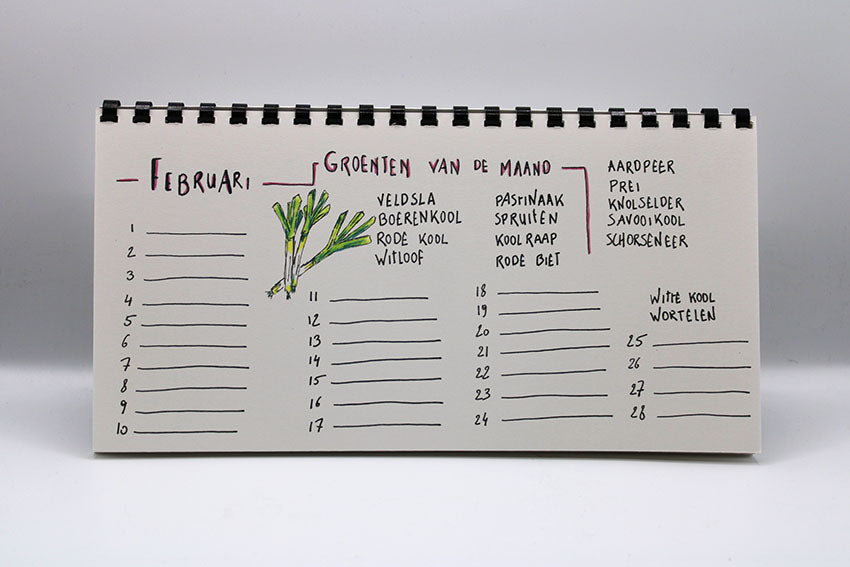 FEBRUARI
GROENTEN VAN DE MAAND
VELDSLA
BOERENKOOL
RODE KOOL
WITLOOF
PASTINAAK
SPRUITEN
KOOLRAAP
RODE BIET
AARDPEER
PREI
KNOLSELDER
SAVOOIKOOL
SCHORSENEER
WITTE KOOL
WORTELEN
1
2
3
4
5
6
7
8
9
10
11
12
13
14
15
16
17
18
19
20
21
22
23
24
25
26
27
28